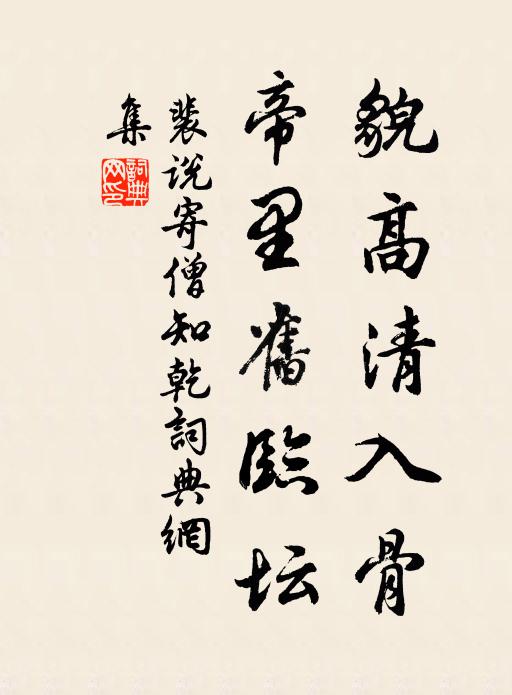 貌高清入骨
帝里舊臨坛
裴说寄僧知乾詞典網
集
詞典
网印